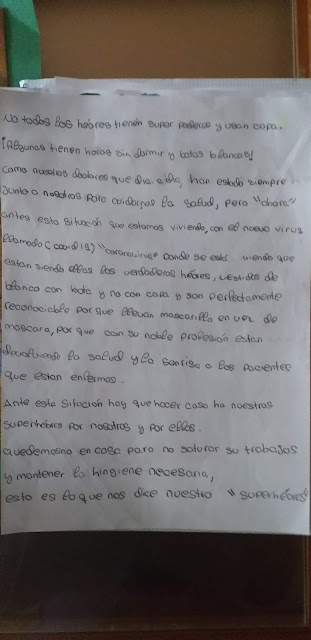 No todos los héores tienen super poderes y usan capa.
¡Algunos tienen horas sin dormir y batas blancas!
Como nuestros doctores que dia a dia, han estado siempre
junto a nosotros para cuidarnos la salud, pero "ahora"
antes esta situación que estamos viviendo, con el nuevo virus
llamado (covid 19) "coronavirus" Donde se está viendo que
están siendo ellos los verdaderos héores, vestidos de
blanco con bata y no con capa y son perfectamente
reconocible por que llevan mascarilla en vez de
mascara, por que con su noble profesión estan
devolviendo la salud y la sonrisa a los pacientes
que estan enfermos.
Ante esta situación hay que hacer caso ha nuestros
superhéores por nosotros y por ellos.
quedemosno en casa para no saturar su trabajos
y mantener la hingiene necesaria,
esto es lo que nos dice nuestro "superhéores"